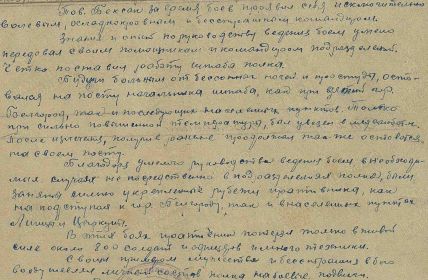 Тов. Токсан за время боев проявил себя исключительно
волевым, хладнокровным и бесстрашным командиром.
Знания и опыт по руководству ведения боем умело
передавал своим помощникам и командирам подразделений.
Четко поставил работу штаба полка.
Будучи больным от бессонных ночей и простуды, оста-
вался на посту начальника штаба, как при взятии гор.
Белгорода, так и последующих населенных пунктов. Только
при сильно повышенной температуре, был увезен в медсанбат.
После излечения, получив ранение продолжал так же оставаться
на своем посту.
Благодаря умелого руководства ведения боем в необходи-
мых случаях непосредственно в подразделениях полка, были
заняты сильно укрепленные рубежи противника, как
на подступах к гор. Белгороду, так и в населенных пунктах
и Циркуны.
В этих боях противник потерял только в живой
силе около 800 солдат и офицеров и много техники.
Своим примером мужества и бесстрашия
воодушевлял личный состав полка на боевые подвиги.